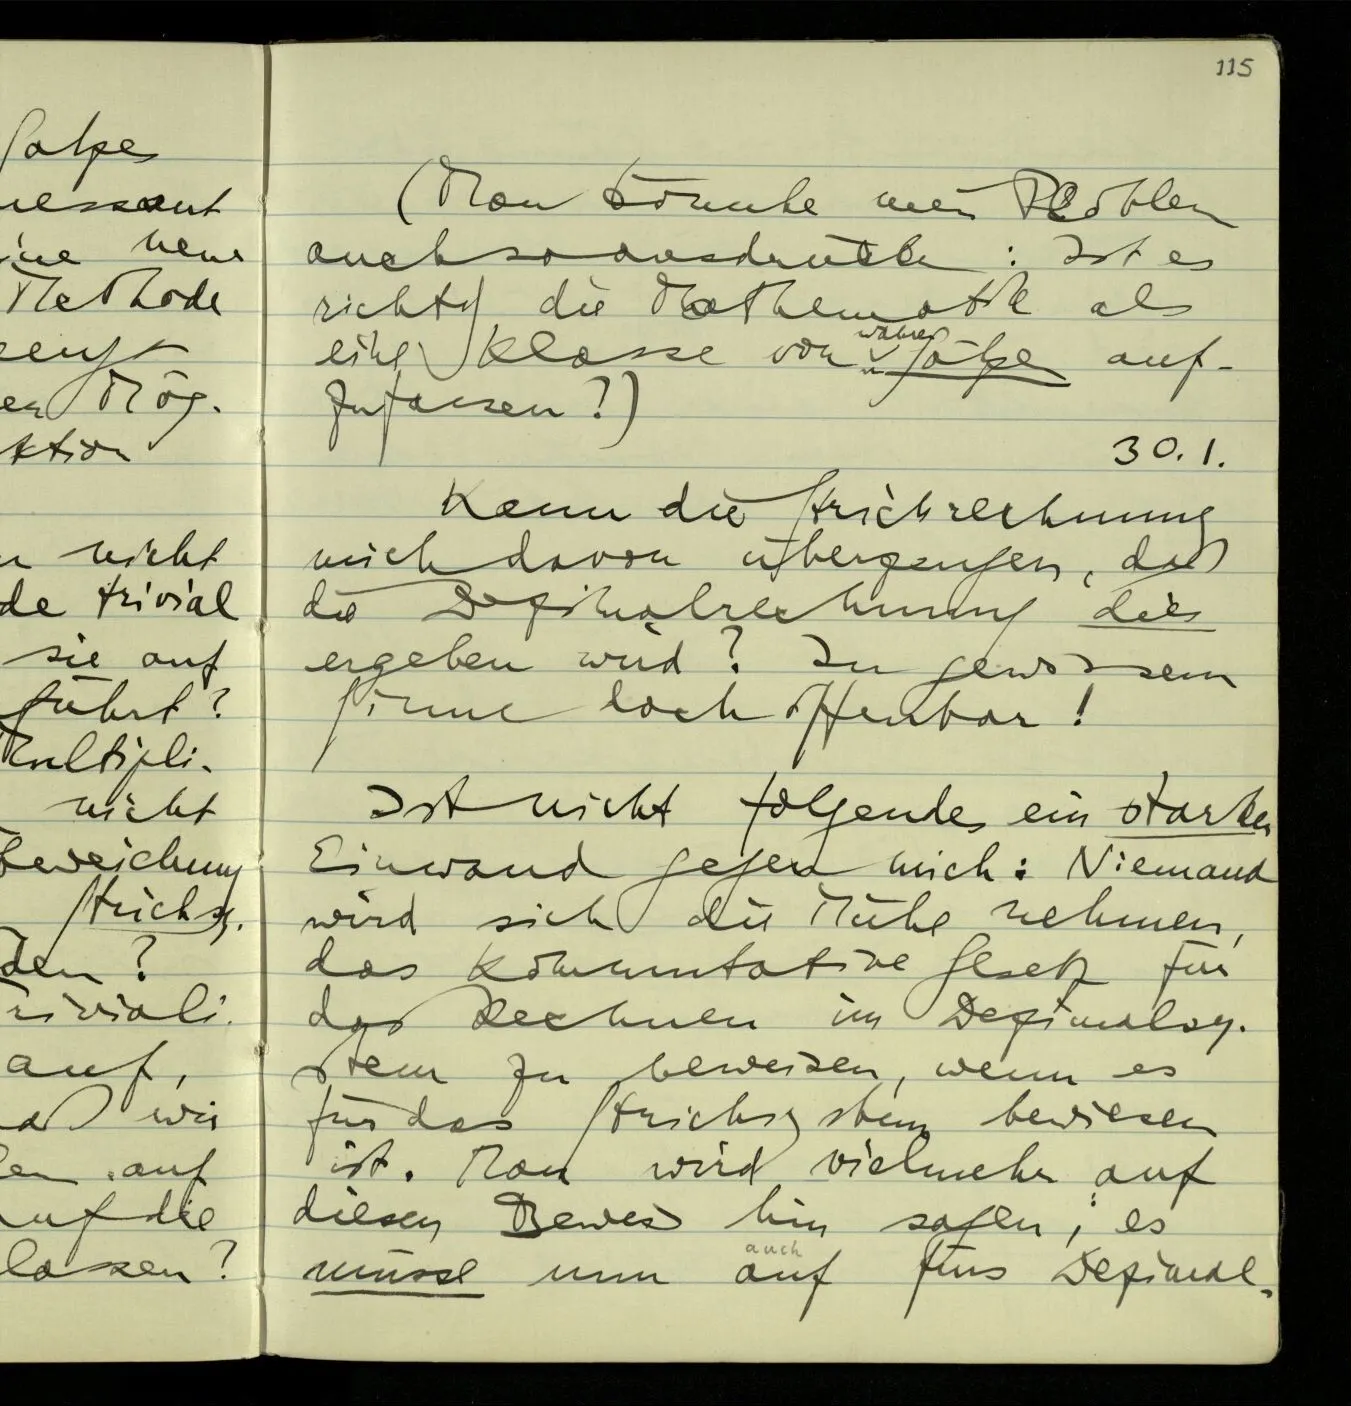 115
Satzes
eine neue
Methode
Mög.
ktion
nicht
de trivial
sie auf
führt?
Multipli-
nicht
bweichung
Strichsy.
den?
riviali-
auf,
wir
en auf
auf die
lassen?
(Man könnte mein Problem
auch so ausdrücken: Ist es
richtig die Mathematik als
eine Klasse von wahren Sätzen auf-
zufassen?)
30.1.
Kann die Strichrechnung
mich davon überzeugen, daß
die Dezimalrechnung dies
ergeben wird? In gewissem
Sinne doch offenbar!
Ist nicht folgendes ein starker
Einwand gegen mich: Niemand
wird sich die Mühe nehmen,
das kommutative Gesetz für
das Rechnen im Dezimalsy-
stem zu beweisen, wenn es
für das Strichsystem bewiesen
ist. Man wird vielmehr auf
diesen Beweis hin sagen, es
müsse nun auch auf fürs Dezimal-